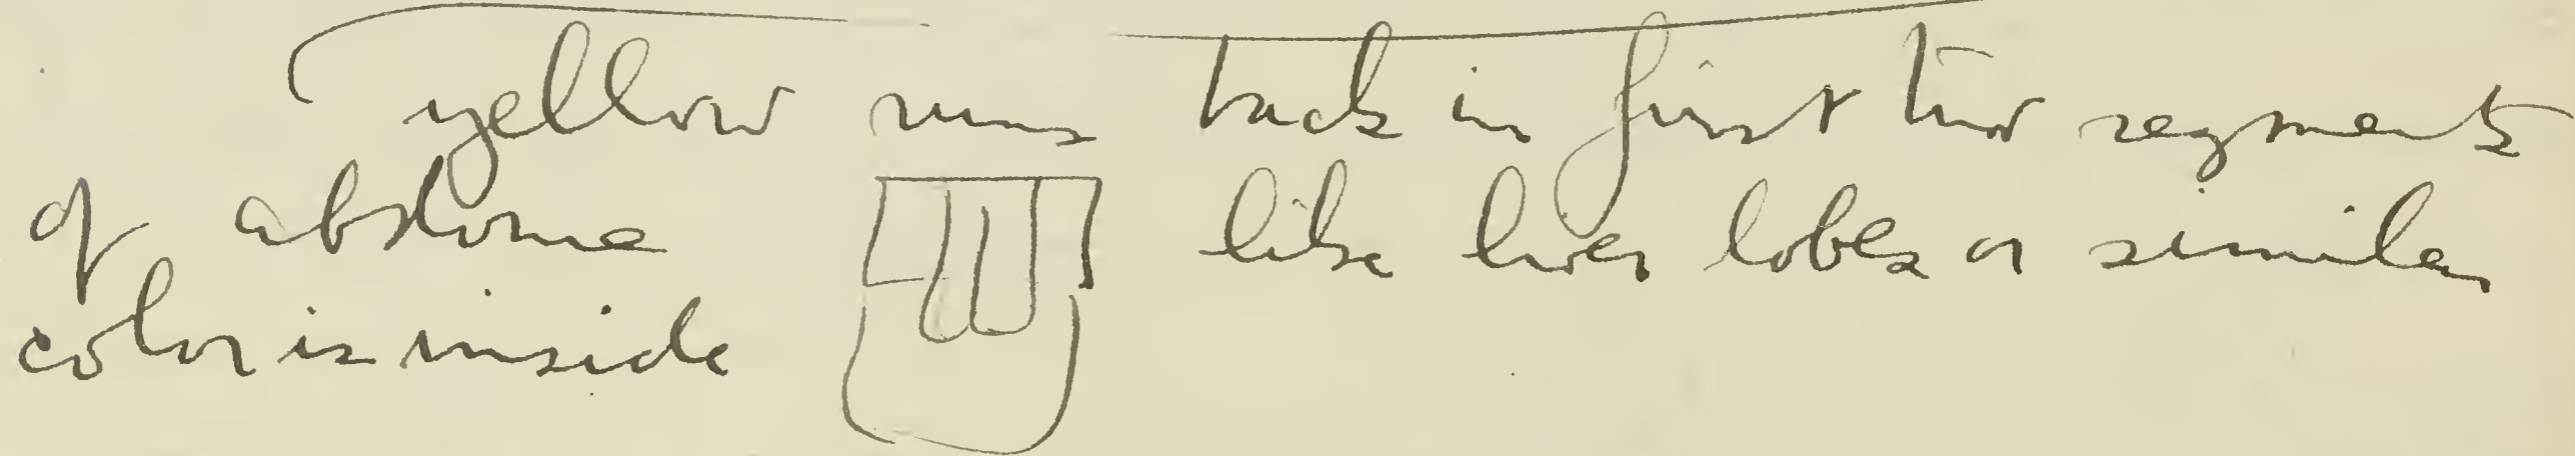 yellow runs back in first two segments
of abdome like liver lobes or similar
color is inside